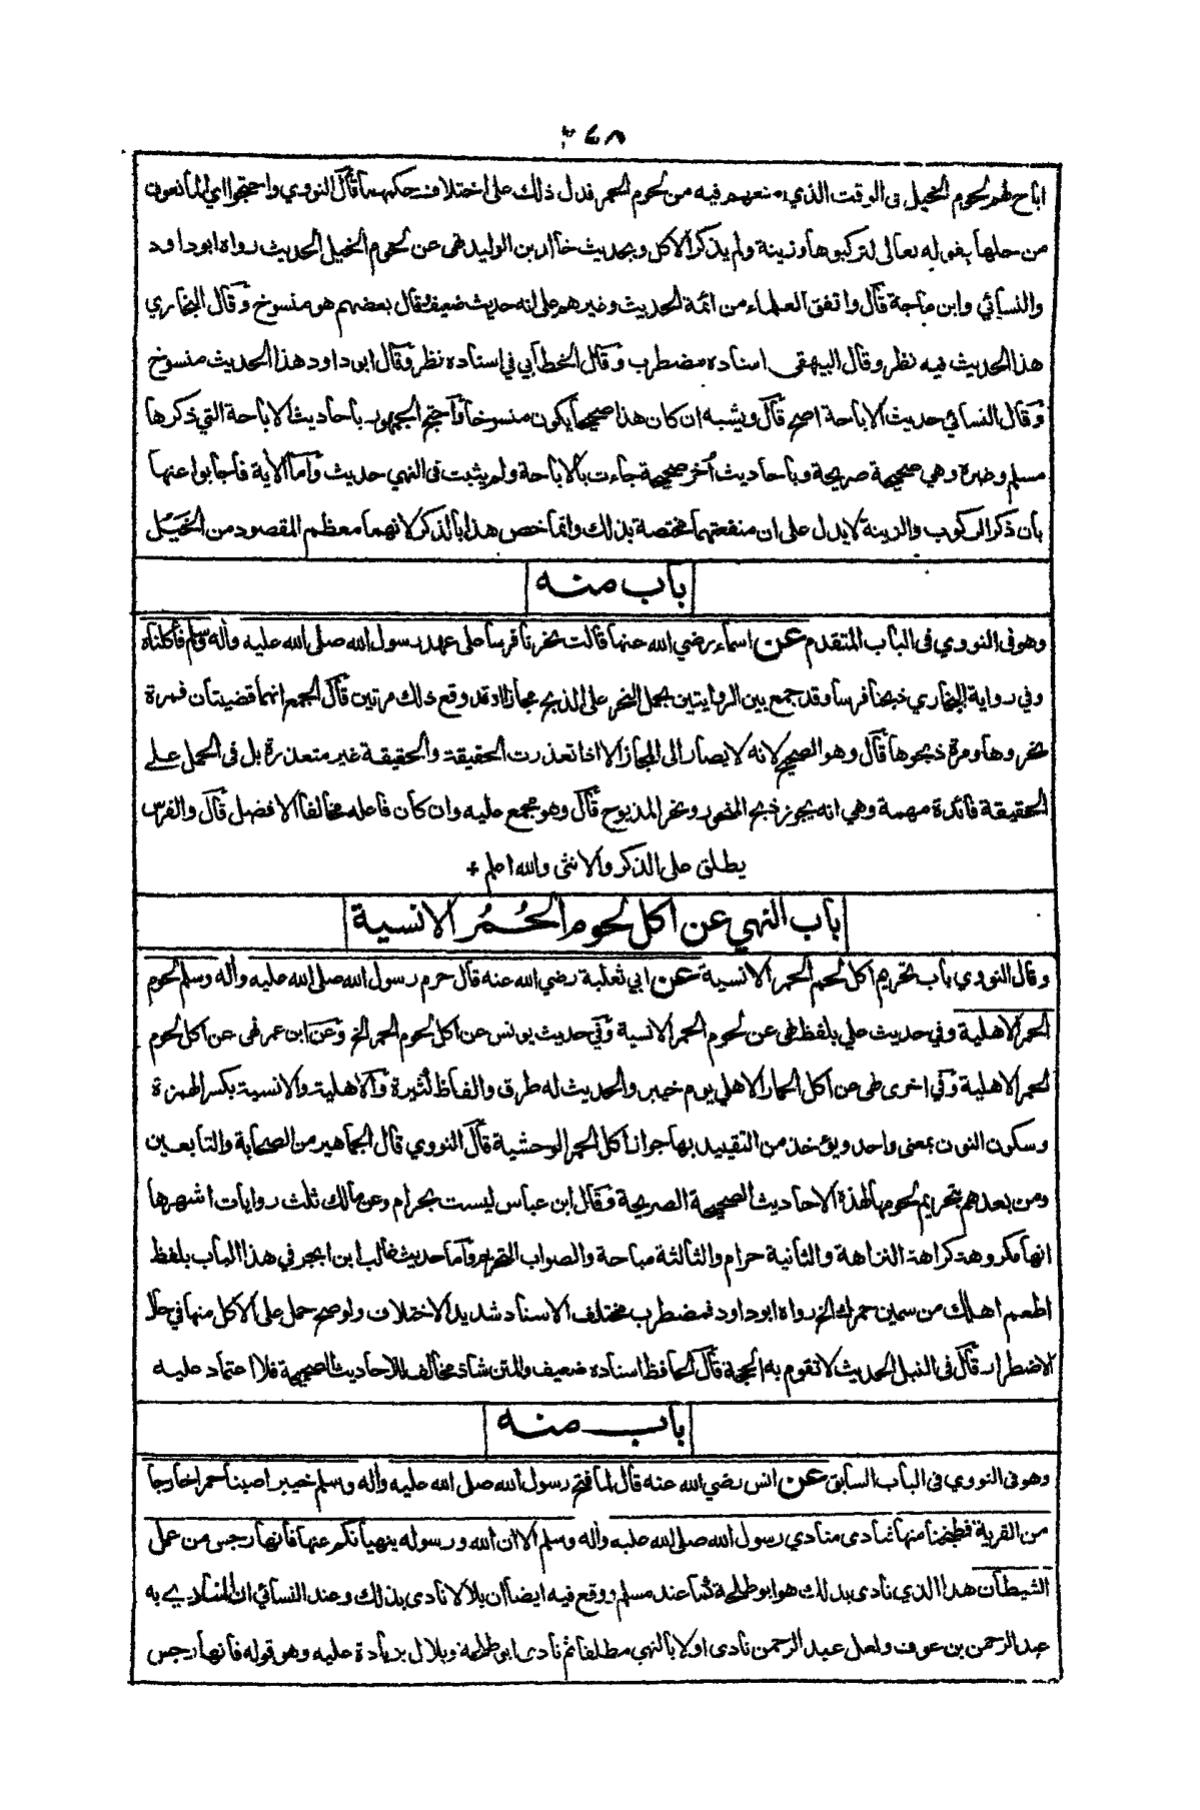 ٣٤٨
اباح لهم لحوم الخيل فى الوقت الذي منعهم فيه من لحوم الحمر فدل ذلك على اختلاف حكمهما قال النووي واحتجوا اي المانعون
من حلها بقوله تعالى لتركبوها وزينة ولم يذكر الاكل وبحديث خالد بن الوليد نهى عن لحوم الخيل الحديث رواه ابو داود
والنسائي وابن ماجة قال واتفق العلماء من ائمة الحديث وغيرهم على انه حديث ضعيف وقال بعضهم هو منسوخ وقال البخاري
هذا الحديث فيه نظر وقال البيهقى اسناده مضطرب وقال الخطابي في اسناده نظر وقال ابو داود هذا الحديث منسوخ
وقال النسائي حديث الاباحة اصح قال ويشبه ان كان هذا صحيحا يكون منسوخا واحتج الجمهور باحاديث الاباحة التي ذكرها
مسلم وغيره وهي صحيحة صريحة وباحاديث أخر صحيحة جاءت بالاباحة ولم يثبت فى النهي حديث واما الأية فاجابوا عنها
بان ذكر الركوب والزينة لا يدل على ان منفعتهما مختصة بذلك وانما خص هذا بالذكر لانهما معظم المقصود من الخيل
باب منه
وهو فى النووي فى الباب المتقدم عن اسماء رضي الله عنها قالت نحرنا فرسا على عهد رسول الله صلى الله عليه وأله وسلم فأكلناه
وفي رواية البخاري ذبحنا فرسا وقد جمع بين الروايتين بحمل النحر على الذبح مجازا او قد وقع ذلك مرتين قال الجمع انهما قضيتان فمرة
نحروها ومرة ذبحوها قال وهو الصحيح لانه لا يصار الى المجاز الا اذا تعذرت الحقيقة والحقيقة غير متعذرة بل فى الحمل على
الحقيقة فائدة مهمة وهي انه يجوز ذبح المنحور ونحر المذبوح قال وهو مجمع عليه وان كان فاعله مخالفا الافضل قال والفرس
يطلق على الذكر والانثى والله اعلم
باب النهي عن اكل لحوم الحُمُر الانسية
وقال النووي باب تحريم اكل لحم الحمر الانسية عن ابي ثعلبة رضي الله عنه قال حرم رسول الله صلى الله عليه وأله وسلم لحوم
الحمر الاهلية وفي حديث علي بلفظ نهى عن لحوم الحمر الانسية وفي حديث يونس عن اكل لحوم الحمر الخ وعن ابن عمر نهى عن اكل لحوم
لحمر الاهلية وفي اخرى نهى عن اكل الحمار الاهلي يوم خيبر والحديث له طرق والفاظ كثيرة والاهلية والانسية بكسر الهمزة
وسكون النون بمعنى واحد ويؤخذ من التقييد بها جواز اكل الحمر الوحشية قال النووي قال الجماهير من الصحابة والتابعين
ومن بعدهم بتحريم لحومها لهذه الاحاديث الصحيحة الصريحة وقال ابن عباس ليست بحرام وعن مالك ثلث روايات اشهرها
انها مكروهة كراهة التنزاهة والثانية حرام والثالثة مباحة والصواب التحريم واما حديث غالب ابن ابجر في هذا الباب بلفظ
اطعم اهلك من سمين حمرك الخ رواه ابو داود فمضطرب مختلف الاسناد شديد الاختلاف ولو صح حمل على الاكل منها في حال
الاضطرار قال فى النيل الحديث لا تقوم به الحجة قال الحافظ اسناده ضعيف والمتن شاذ مخالف للاحاديث الصحيحة فلا اعتماد عليه
باب منه
وهو فى النووي فى الباب السابق عن انس رضي الله عنه قال لما فتح رسول الله صلى الله عليه وأله وسلم خيبر اصبنا حمرا خارجا
من القرية فطبخنا منها فنادى منادي رسول الله صلى الله عليه وأله وسلم الا ان الله ورسوله ينهيانكم عنها فانها رجس من عمل
الشيطان هذا الذي نادى بذلك هو ابو طلحة كما عند مسلم ووقع فيه ايضا ان بلالا نادى بذلك وعند النسائي ان المنادي به
عبد الرحمن بن عوف ولعل عبد الرحمن نادى اولا بالنهي مطلقا ثم نادى ابو طلحة وبلال بزيادة عليه وهو قوله فانها رجس